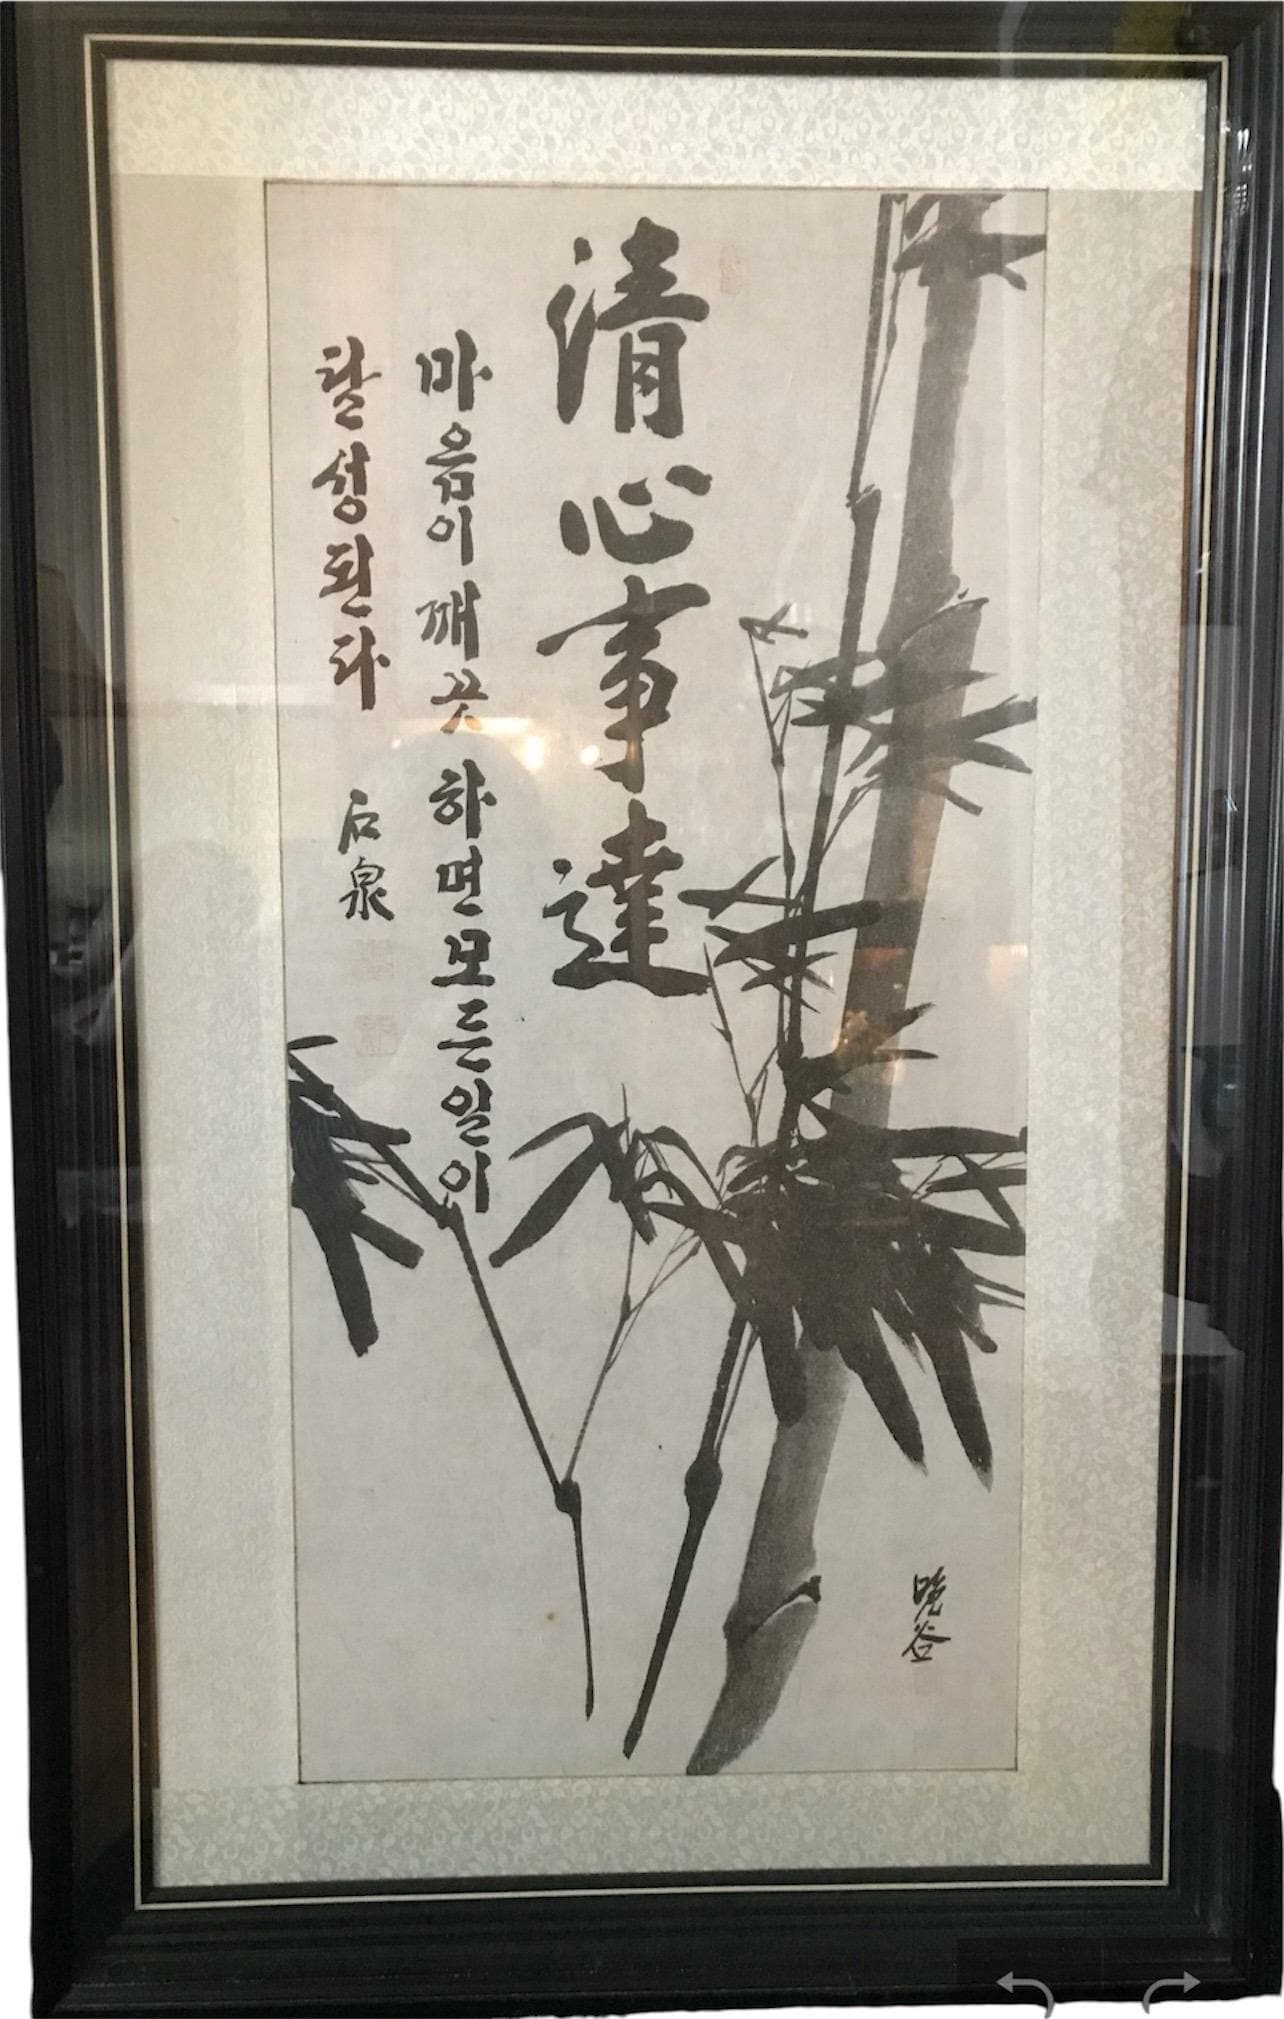 清心事達
마음이깨끗하면모든일이
달성된다
石泉
晩谷